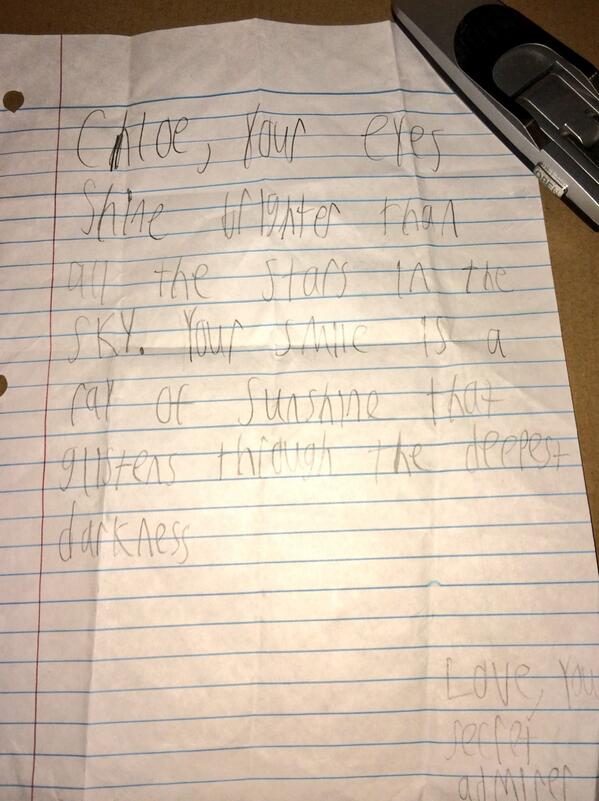 Chloe, Your eyes
Shine brighter than
all the stars in the
SKY. Your smile is a
ray of sunshine that
glistens through the deepest
darkness
Love, You
secret
admirer